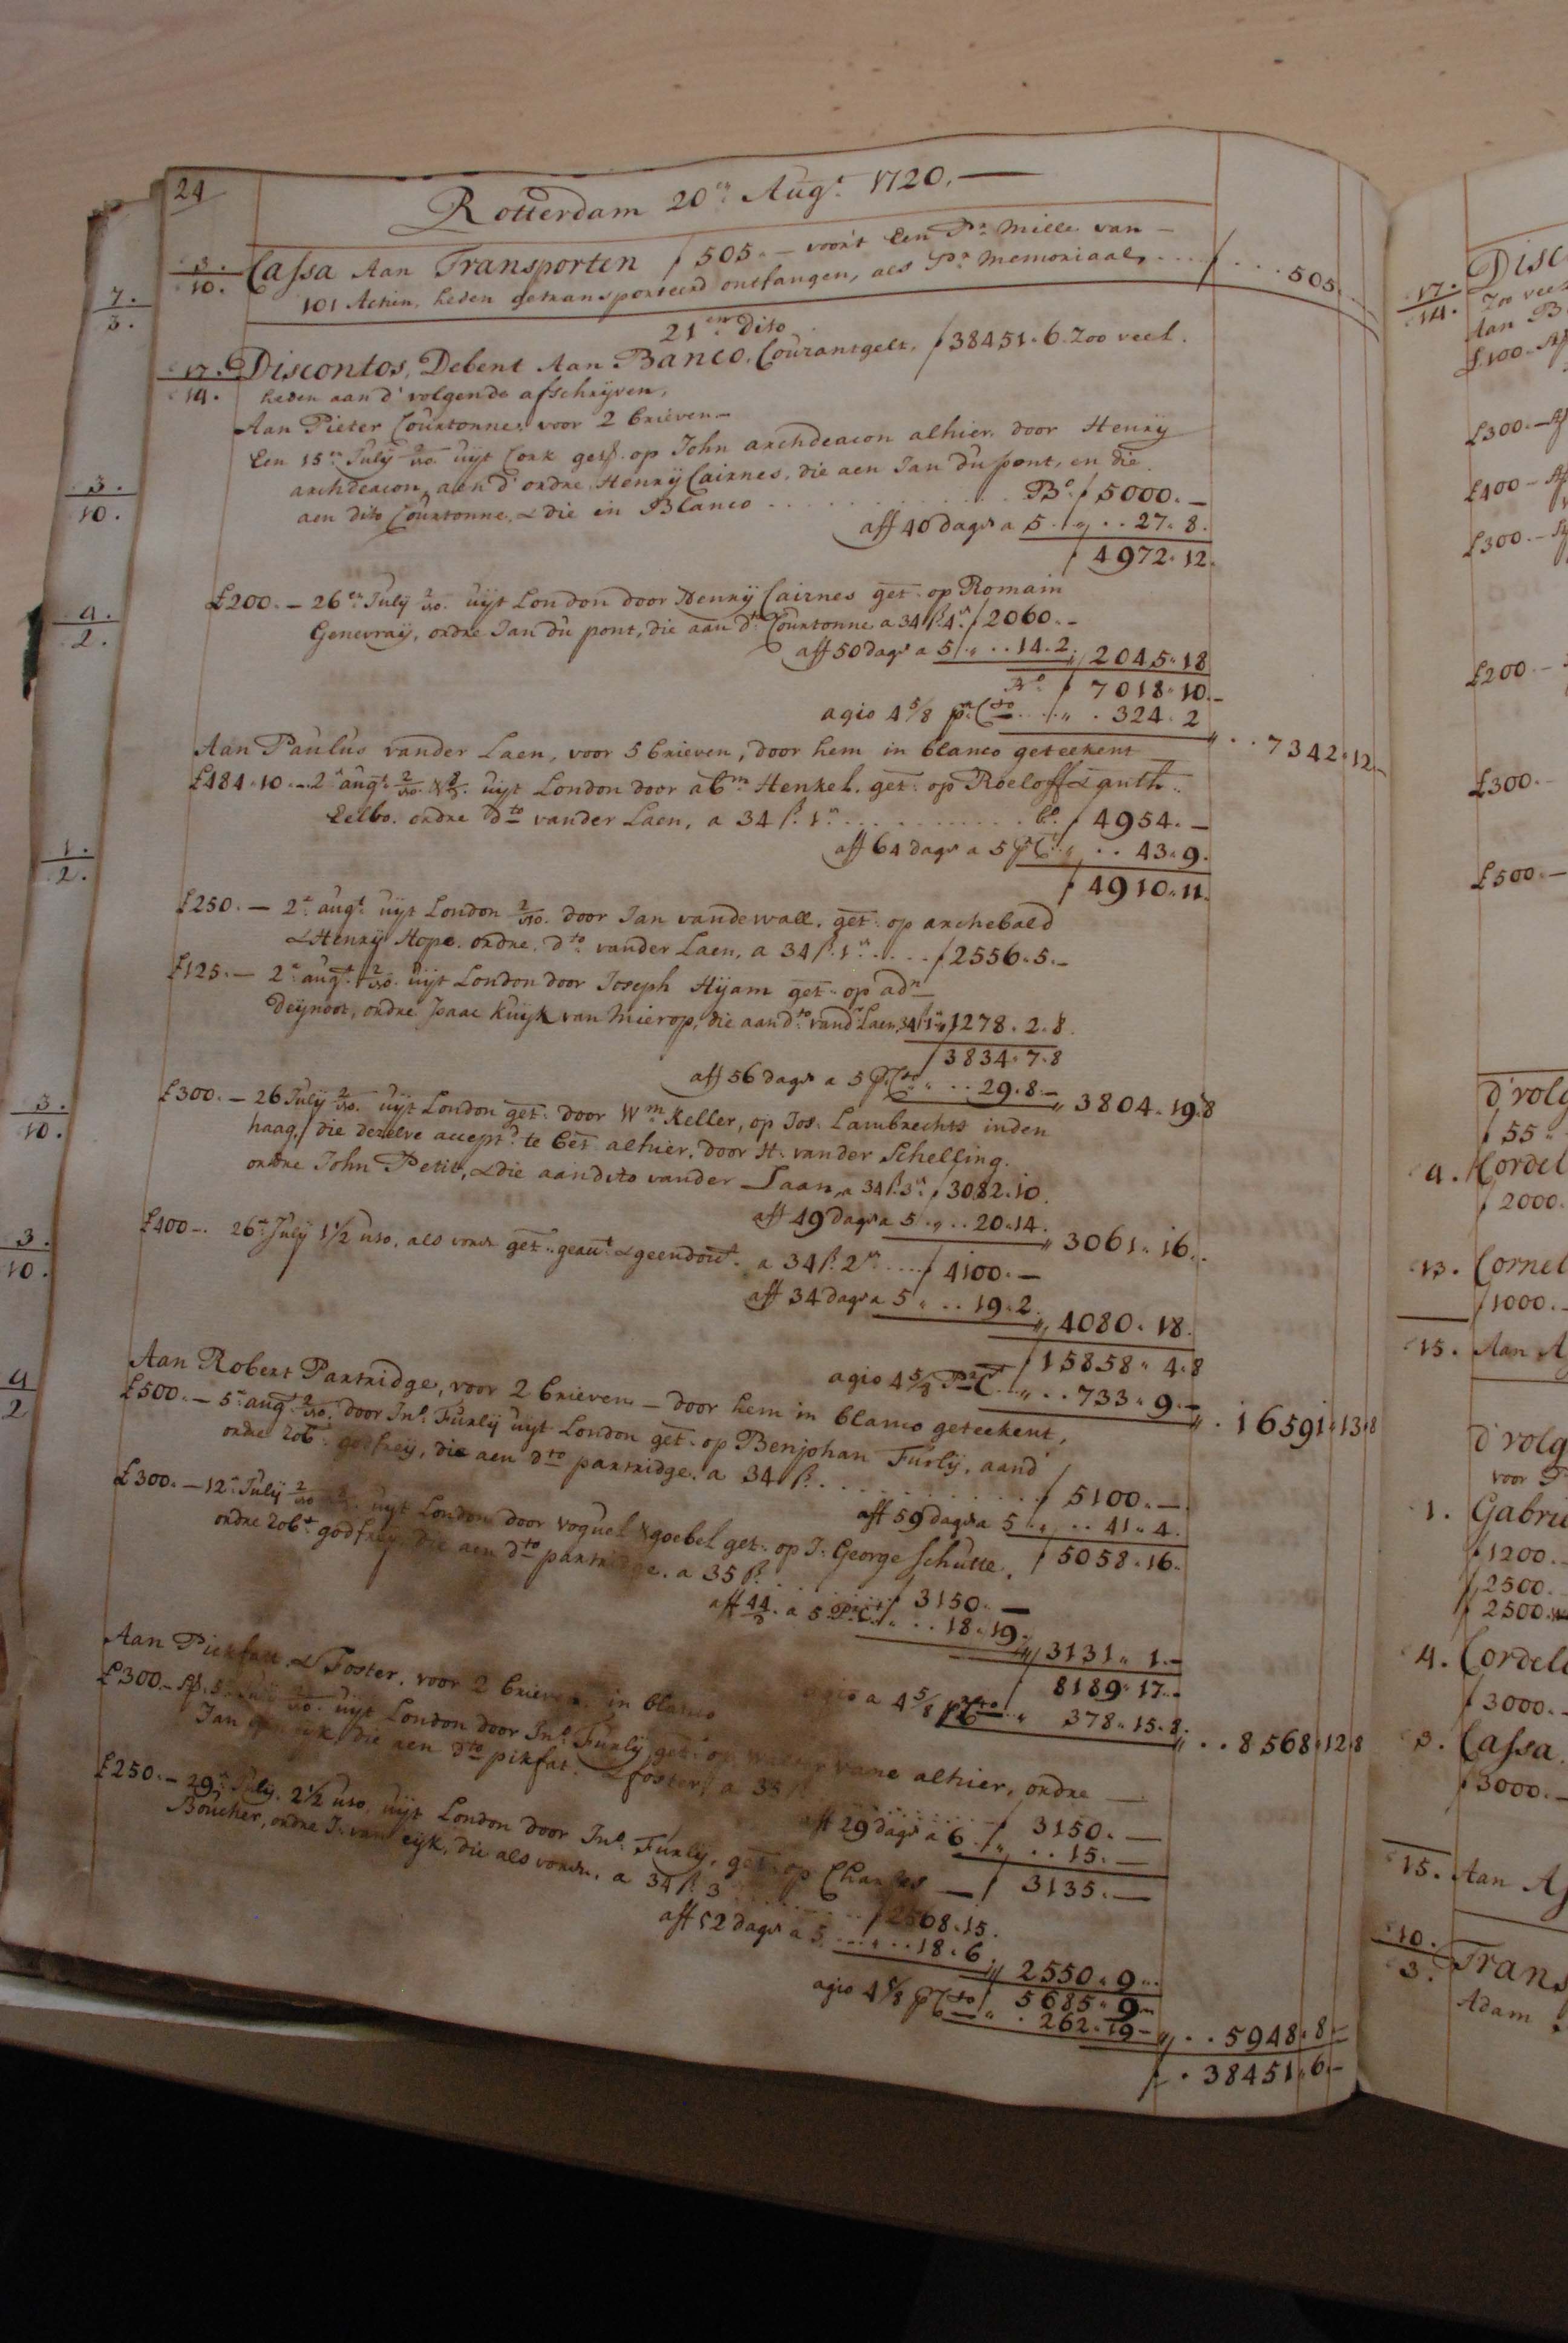 24
Rotterdam 20en Augt. 1720.—
3. / 10. Cassa Aan Transporten ƒ505.— voor't Een Pr. Mille van —
101 Actien, heden getransporteerd ontfangen, als Pr. Memoriaal, .... ƒ... 505.
21en dito
17. / 14. Discontos, Debent Aan Banco. Courantgelt, ƒ38451.6. Zoo veel.
heden aan d' volgende afschryven,
Aan Pieter Courtonne, voor 2 brieven —
Een 15en July 2/uso. uijt Cork get. op John archdeacon alhier. door Henry
archdeacon, aen d' ordre Henrij Cairnes, die aen Jan du pont, en die
aen dito Courtonne, & die in Blanco .......... Bo. ƒ5000.—
aff 40 dagn a 5. „ .. 27. 8.
ƒ4972.12.
£200.— 26en July 2/uso. uijt London door Henrij Cairnes get. op Romain
Genevraij, ordre Jan du pont, die aan dt. Courtonne a 34 ß. 4n. ƒ2060.—
aff 50 dagn a 5 „ .. 14.2. „ 2045.18
Bo. ƒ 7018.10.—
agio 4 5/8 pr. Cto .... „ . 324. 2
„ .. 7342.12.—
Aan Paulus vander Laen, voor 5 brieven, door hem in blanco geteekent —
£484.10.— 2n augt. 2/uso. uijt London door abm Henkel. get. op Roeloff & anth.
Eelbo. ordre dto vander Laen, a 34 ß. 1n. .......... bo. ƒ 4954.—
aff 64 dagn a 5 pr Ct. „ .. 43.9.
ƒ 4910.11.
£250.— 2n. augt. uijt London 2/uso. door Jan vandewall. get. op archebald
& Henrij Hope. ordre. dto vander Laen, a 34 ß. 1n. .... ƒ2556.5.—
£125.— 2n. augt. 2/uso. uijt London door Joseph Hijam get. op adn
Deijnoot, ordre Isaac Kuijk van Mierop, die aan dto. vandr Laen, 34 ß 1n. ƒ1278.2.8.
ƒ3834.7.8
aff 56 dagn a 5 pr. Cto. „ .. 29.8.— „ 3804.19.8
£300.— 26 July 2/uso. uijt London get. door Wm Keller, op Jos. Lambrechts inden
haag, die dezelve accept. te bet. alhier, door H. vander Schelling.
ordre John Petit, & die aan dito vander Laan, a 34 ß. 3n. ƒ3082.10.
aff 49 dagn a 5 „ .. 20.14. „ 3061.16..
£400.—. 26n. July 1 1/2 uso, als vorn get. geaut. & geendoset. a 34 ß. 2n. .... ƒ 4100.—
aff 34 dagn a 5 „ .. 19.2. „ 4080.18.
ƒ15858.4.8
agio 4 5/8 Pr. Ct. .. „ .. 733.9.—
„ . 16591.13.8
Aan Robert Partridge, voor 2 brieven — door hem in blanco geteekent,
£500.— 5n. augt. 2/uso. door Jno. Furlij uijt London get. op Benjohan Furlij, aan d'
ordre Robt. godfreij, die aen dto partridge. a 34 ß. .......... ƒ 5100.—.
aff 59 dagn a 5 „ .. 41.4.
ƒ 5058.16.
£300.— 12n. July 2/uso uijt London door voguel & goebel get. op J. George Schutte,
ordre Robt godfreij die aen dto partridge. a 35 ß. ........ ƒ 3150.—
aff 44/d. a 5 Pr. Ct. „ .. 18.19. „ 3131. 1.—
ƒ 8189.17.—
agio a 4 5/8 pr Cto „ 378.15.8.
„ .. 8568.12.8
Aan Pickfatt & Foster, voor 2 brieven in blanco
£300.— uijt London door Jno. Furlij get. op vane alhier, ordre —
Jan eijk, die aen dto pikfat. & foster, a 35 ß. ........ ƒ 3150.—
aff 29 dagn a 6 . „ .. 15.—
ƒ 3135.—
£250.— 29n July. 2 1/2 uso, uijt London door Jno. Furlij, get. op Charles —
Boucher, ordre J. van eijk, die als vorn, a 34 ß 3 ........ ƒ2568.15.
aff 52 dagn a 5 .... „ .. 18.6. „ 2550.9..
ƒ 5685.9—
agio 4 5/8 pr Cto „ . 262.19—
„ .. 5948.8.—
ƒ . 38451.6.—
7. / 3.
3. / 10.
4. / 2.
1. / 2.
3. / 10.
3. / 10.
4 / 2
17. / 14.
Disc
Zoo veel
Aan B
£100.
£300.—
£400—
£300.—
£200—
£300.—
£500.—
d'volg
ƒ 55
4. Cordel
ƒ 2000.
13. Cornel
ƒ1000.
15. Aan A
d'volg
voor
1. Gabrie
ƒ1200.
ƒ2500.
ƒ 2500.
4. Cordel
ƒ3000.
3. Cassa
ƒ3000.—
15. Aan A
10. / 3. Trans
Adam